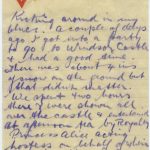 Kicking around in my
blues. A couple of days
ago I got into a party
to go to Windsor Castle
& had a good time.
There was about 6 ins
of snow on the ground but
that didn't matter.
We spent two hours
there & were shown all
over the castle & entertained
at afternoon tea by Royalty
Princess Alice acting
hostess on behalf of